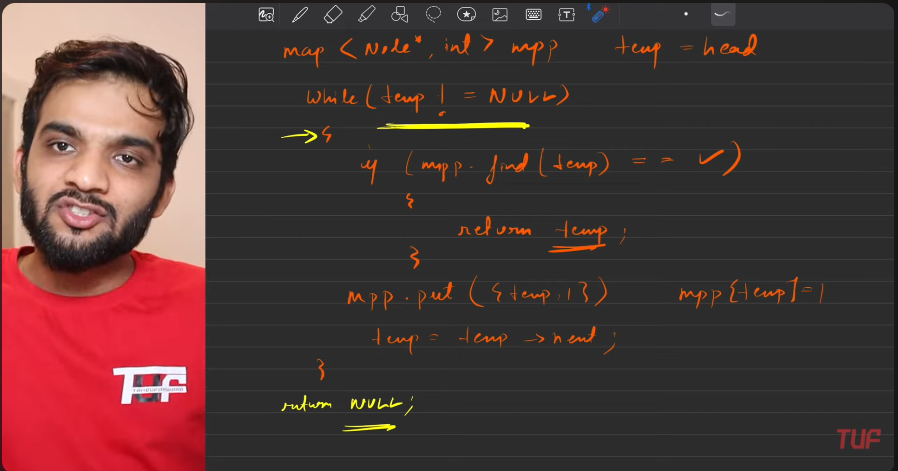 map < Node*, int > mpp temp = head
while (temp != NULL)
→ {
if (mpp.find(temp) == ✓)
{
return temp;
}
mpp.put ({temp, 1}) mpp[temp] = 1
temp = temp → next;
}
return NULL;
TUF
TUF